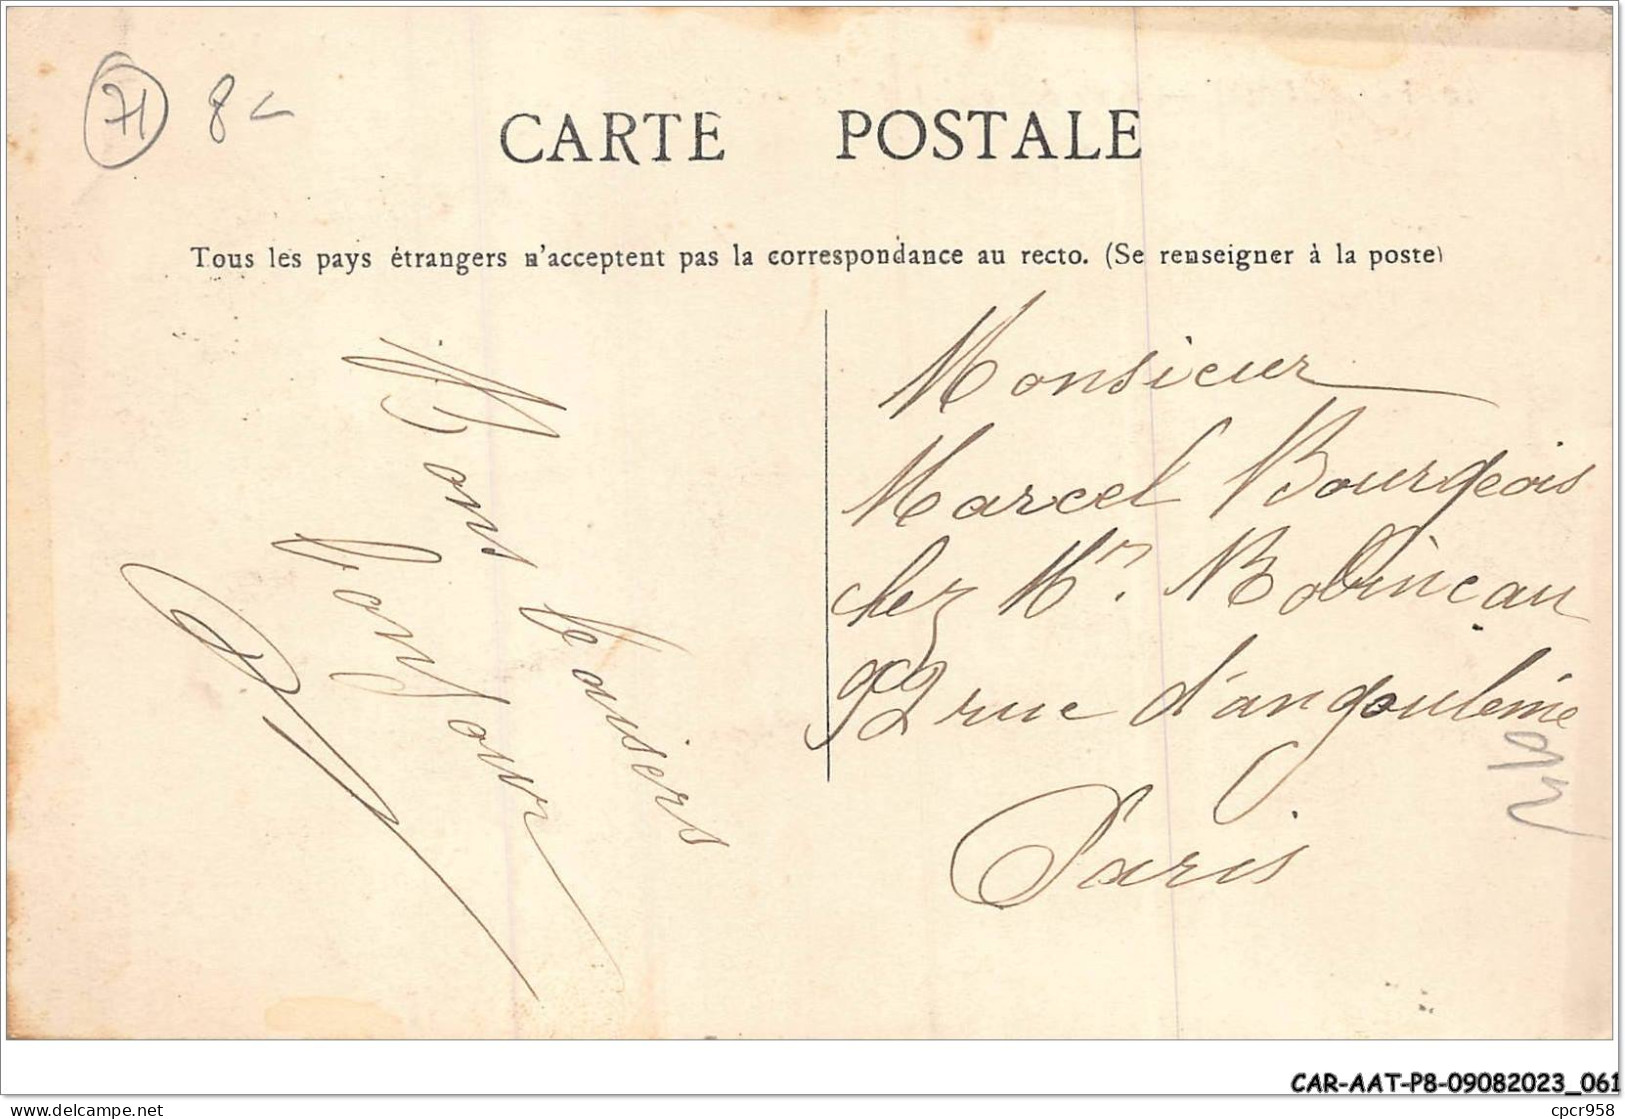 71 8
CARTE POSTALE
Tous les pays étrangers n'acceptent pas la correspondance au recto. (Se renseigner à la poste)
Bons baisers
bonjour
Monsieur
Marcel Bourgeois
chez Mr. Robineau
92 rue d'angoulême
Paris
CAR-AAT-P8-09082023_061
cpcr958